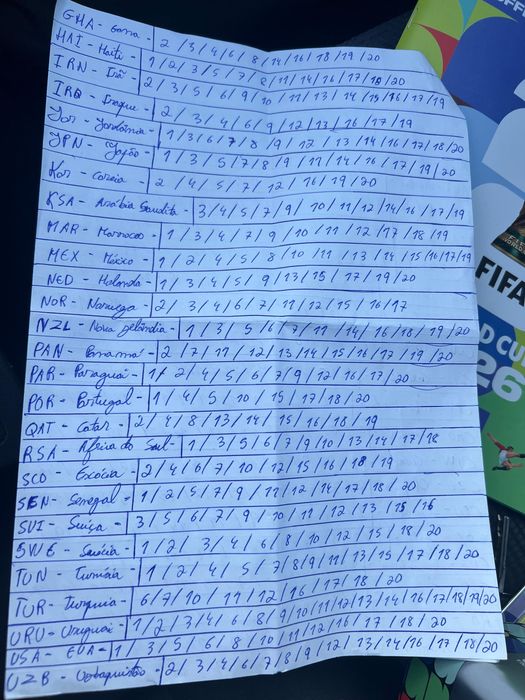 GHA - Gana - 2 / 3 / 4 / 6 / 8 / 14 / 16 / 18 / 19 / 20
HAI - Haiti - 1 / 2 / 3 / 5 / 7 / 8 / 11 / 14 / 16 / 17 / 18 / 20
IRN - Irã - 2 / 3 / 5 / 6 / 9 / 10 / 11 / 13 / 14 / 15 / 16 / 17 / 19
IRQ - Iraque - 2 / 3 / 4 / 6 / 9 / 12 / 13 / 16 / 17 / 19
Jor - Jordânia - 1 / 3 / 6 / 7 / 8 / 9 / 12 / 13 / 14 / 16 / 17 / 18 / 20
JPN - Japão - 1 / 3 / 5 / 7 / 8 / 9 / 11 / 14 / 16 / 17 / 19 / 20
Kor - Coreia - 2 / 4 / 5 / 7 / 12 / 16 / 19 / 20
KSA - Arábia Saudita - 3 / 4 / 5 / 7 / 9 / 10 / 11 / 12 / 14 / 16 / 17 / 19
MAR - Marrocos - 1 / 3 / 4 / 7 / 9 / 10 / 11 / 12 / 17 / 18 / 19
MEX - México - 1 / 2 / 4 / 5 / 8 / 10 / 11 / 13 / 14 / 15 / 16 / 17 / 19
NED - Holanda - 1 / 3 / 4 / 5 / 9 / 13 / 15 / 17 / 19 / 20
NOR - Noruega - 2 / 3 / 4 / 6 / 7 / 11 / 12 / 15 / 16 / 17
NZL - Nova Zelândia - 1 / 3 / 5 / 6 / 7 / 11 / 14 / 16 / 18 / 19 / 20
PAN - Panamá - 2 / 7 / 11 / 12 / 13 / 14 / 15 / 16 / 17 / 19 / 20
PAR - Paraguai - 1 / 2 / 4 / 5 / 6 / 7 / 9 / 12 / 16 / 17 / 20
POR - Portugal - 1 / 4 / 5 / 10 / 15 / 17 / 18 / 20
QAT - Catar - 2 / 4 / 8 / 13 / 14 / 15 / 16 / 18 / 19
RSA - Africa do Sul - 1 / 3 / 5 / 6 / 7 / 9 / 10 / 13 / 14 / 17 / 18
SCO - Escócia - 2 / 4 / 6 / 7 / 10 / 12 / 15 / 16 / 18 / 19
SEN - Senegal - 1 / 2 / 5 / 7 / 9 / 11 / 12 / 14 / 17 / 18 / 20
SUI - Suiça - 3 / 5 / 6 / 7 / 9 / 10 / 11 / 12 / 13 / 15 / 16
SWE - Suécia - 1 / 2 / 3 / 4 / 6 / 8 / 10 / 12 / 15 / 18 / 20
TUN - Tunísia - 1 / 2 / 4 / 5 / 7 / 8 / 9 / 11 / 13 / 15 / 17 / 18 / 20
TUR - Turquia - 6 / 7 / 10 / 11 / 12 / 16 / 17 / 18 / 20
URU - Uruguai - 1 / 2 / 3 / 4 / 6 / 8 / 9 / 10 / 11 / 12 / 13 / 14 / 16 / 17 / 18 / 19 / 20
USA - EUA - 1 / 3 / 5 / 6 / 8 / 10 / 11 / 12 / 16 / 17 / 18 / 20
UZB - Uzbequistão - 2 / 3 / 4 / 6 / 7 / 8 / 9 / 12 / 13 / 14 / 16 / 17 / 18 / 20
FIFA
D CU
26